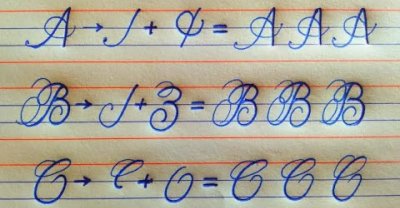 A → ʃ + ¢ = A A A
B → ʃ + 3 = B B B
C → ୧ + O = C C C